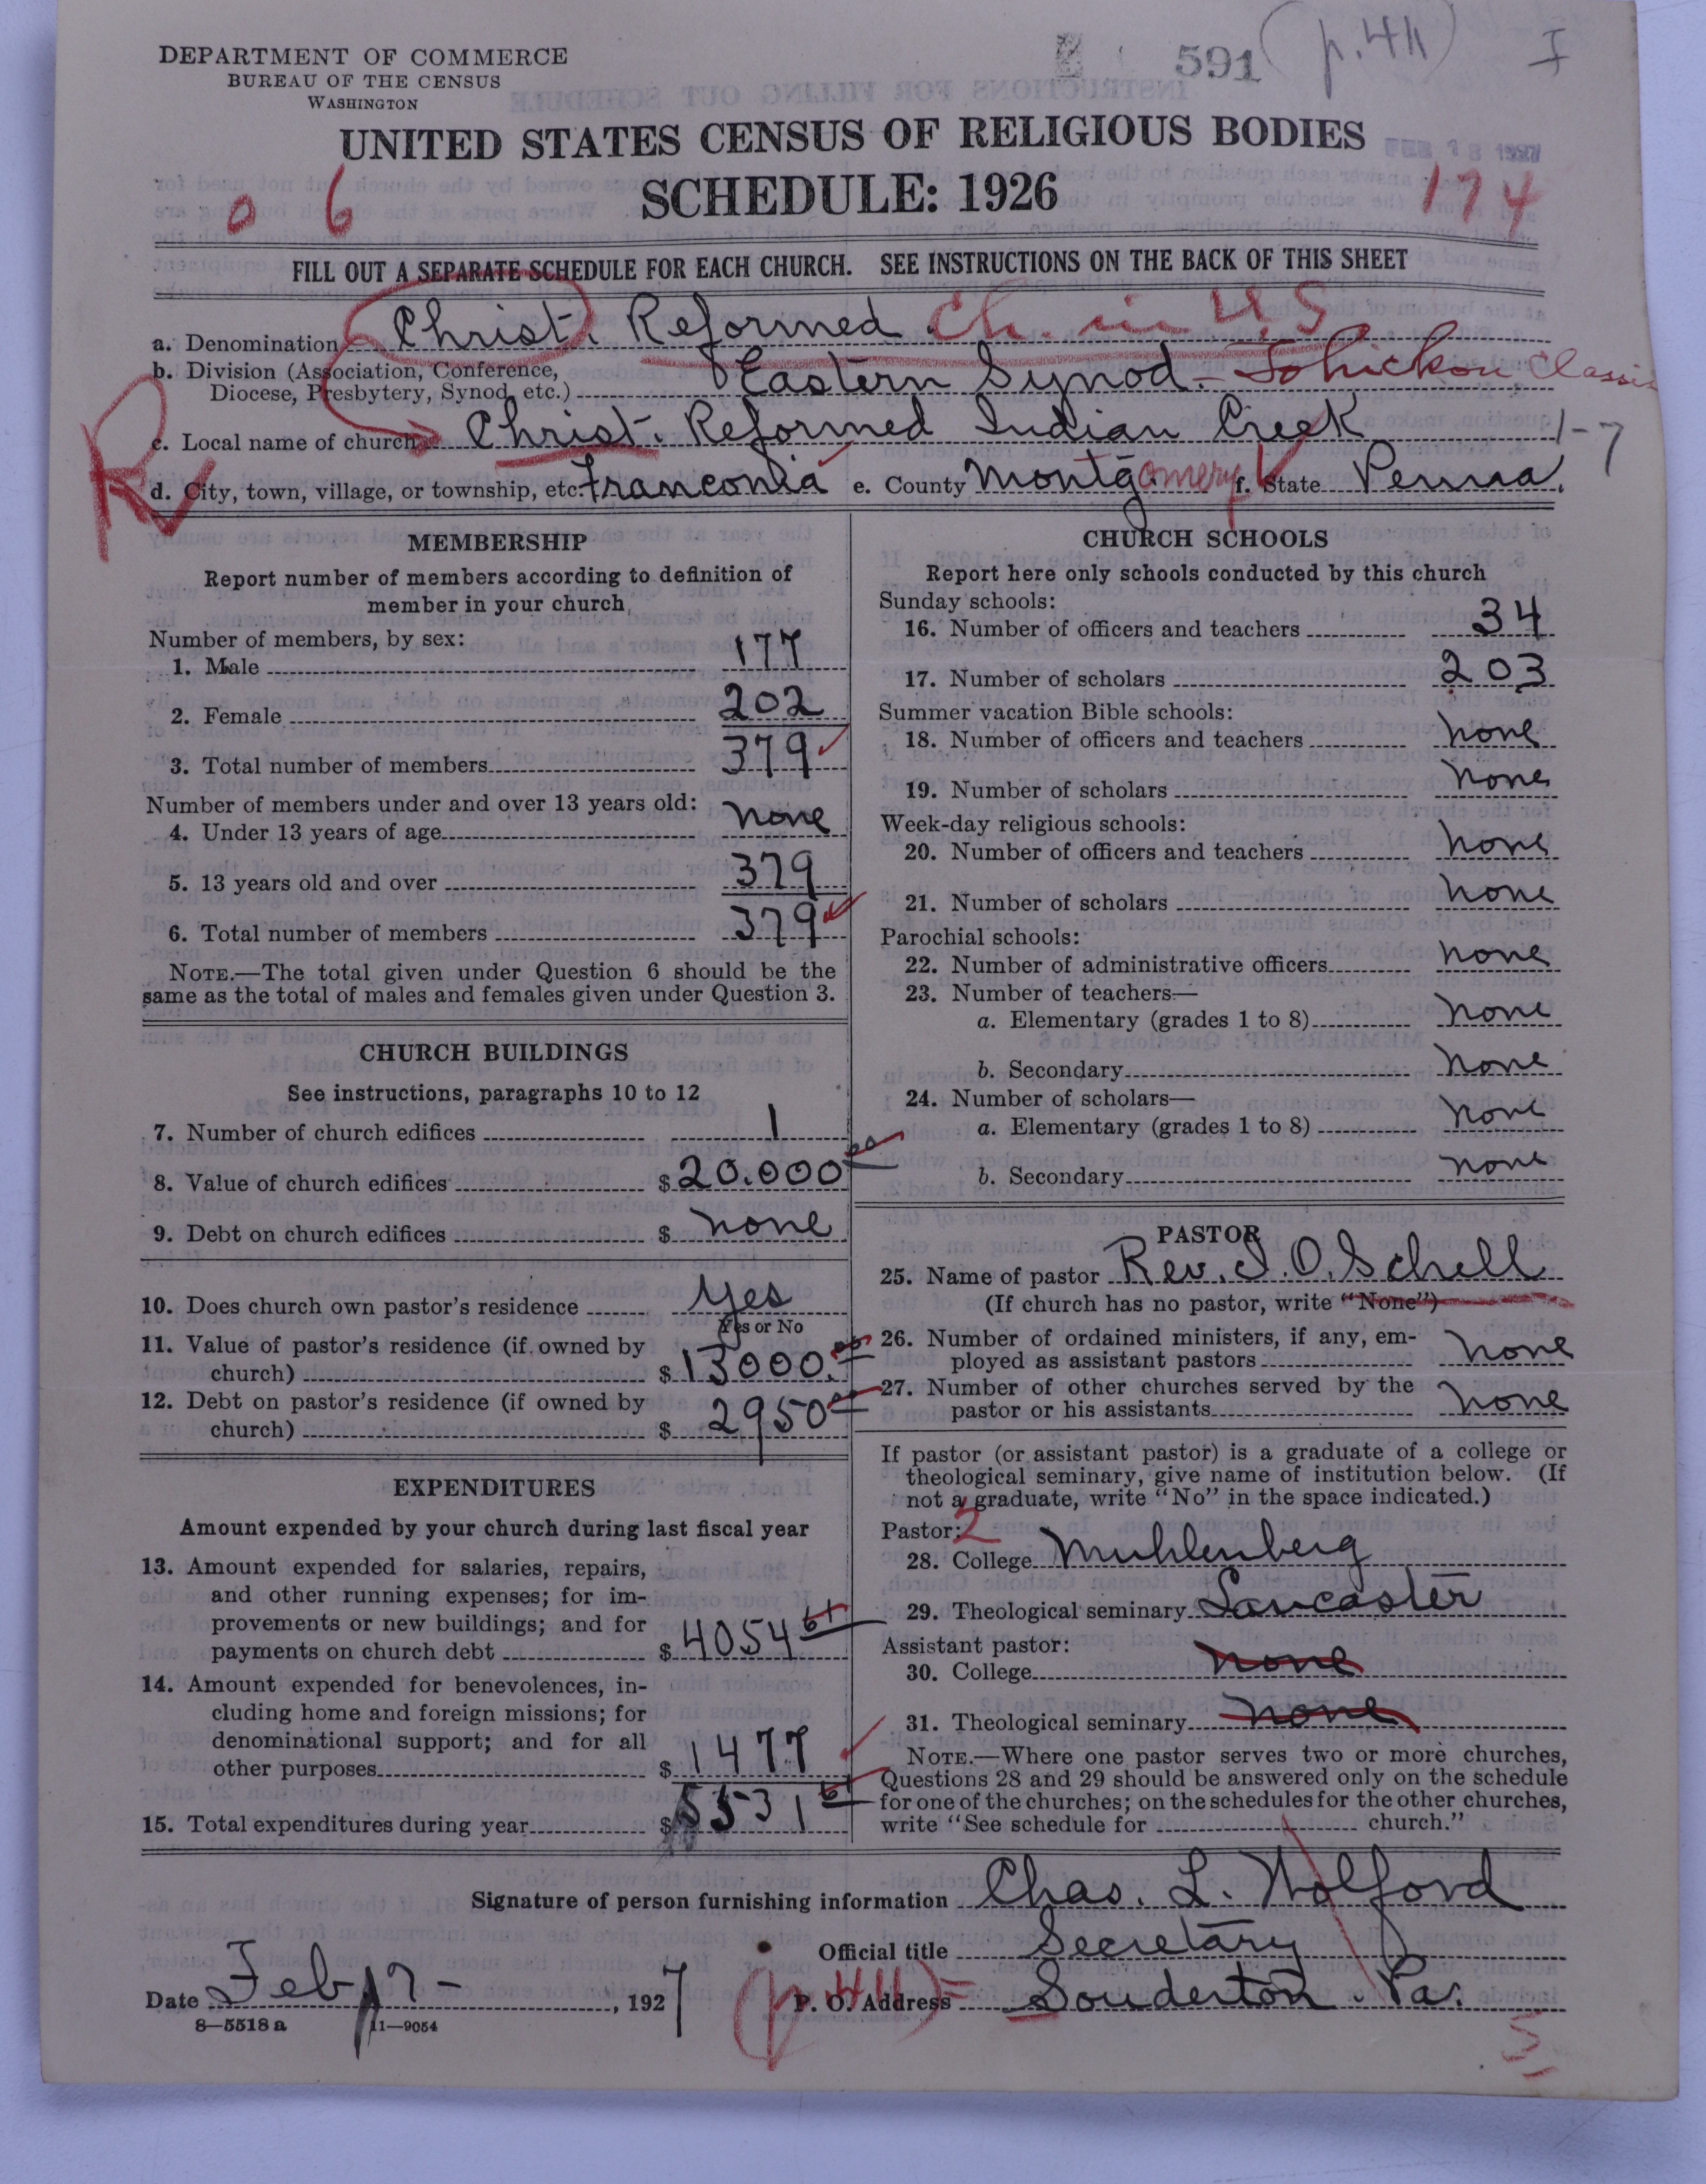 591 (p. 411) I
DEPARTMENT OF COMMERCE
BUREAU OF THE CENSUS
WASHINGTON
UNITED STATES CENSUS OF RELIGIOUS BODIES
FEB 18 1927
SCHEDULE: 1926
0 6
174
FILL OUT A SEPARATE SCHEDULE FOR EACH CHURCH. SEE INSTRUCTIONS ON THE BACK OF THIS SHEET
a. Denomination Christ. Reformed. Ch. in U S
b. Division (Association, Conference, Diocese, Presbytery, Synod, etc.) Eastern Synod. - Tohickon Classis
R
c. Local name of church Christ. Reformed Indian Creek 1-7
d. City, town, village, or township, etc. Franconia e. County Montgomery f. State Penna.
MEMBERSHIP
Report number of members according to definition of
member in your church
Number of members, by sex:
1. Male 177
2. Female 202
3. Total number of members 379
Number of members under and over 13 years old:
4. Under 13 years of age none
5. 13 years old and over 379
6. Total number of members 379
NOTE.—The total given under Question 6 should be the
same as the total of males and females given under Question 3.
CHURCH BUILDINGS
See instructions, paragraphs 10 to 12
7. Number of church edifices 1
8. Value of church edifices $20.000 00
9. Debt on church edifices $ none
10. Does church own pastor's residence yes
Yes or No
11. Value of pastor's residence (if owned by
church) $13000.00
12. Debt on pastor's residence (if owned by
church) $ 2950 00
EXPENDITURES
Amount expended by your church during last fiscal year
13. Amount expended for salaries, repairs,
and other running expenses; for im-
provements or new buildings; and for
payments on church debt $4054 61
14. Amount expended for benevolences, in-
cluding home and foreign missions; for
denominational support; and for all
other purposes $1477
15. Total expenditures during year $5531 61
CHURCH SCHOOLS
Report here only schools conducted by this church
Sunday schools:
16. Number of officers and teachers 34
17. Number of scholars 203
Summer vacation Bible schools:
18. Number of officers and teachers none
19. Number of scholars none
Week-day religious schools:
20. Number of officers and teachers none
21. Number of scholars none
Parochial schools:
22. Number of administrative officers none
23. Number of teachers—
a. Elementary (grades 1 to 8) none
b. Secondary none
24. Number of scholars—
a. Elementary (grades 1 to 8) none
b. Secondary none
PASTOR
25. Name of pastor Rev. J. O. Schell
(If church has no pastor, write "None")
26. Number of ordained ministers, if any, em-
ployed as assistant pastors none
27. Number of other churches served by the
pastor or his assistants none
If pastor (or assistant pastor) is a graduate of a college or
theological seminary, give name of institution below. (If
not a graduate, write "No" in the space indicated.)
Pastor: 2
28. College Muhlenberg
29. Theological seminary Lancaster
Assistant pastor:
30. College none
31. Theological seminary none
NOTE.—Where one pastor serves two or more churches,
Questions 28 and 29 should be answered only on the schedule
for one of the churches; on the schedules for the other churches,
write "See schedule for church."
Signature of person furnishing information Chas. L. Wolford
Official title Secretary
Date Feb 17-, 1927 (p. 411) P. O. Address Souderton. Pa.
8—5518 a 11—9054
5